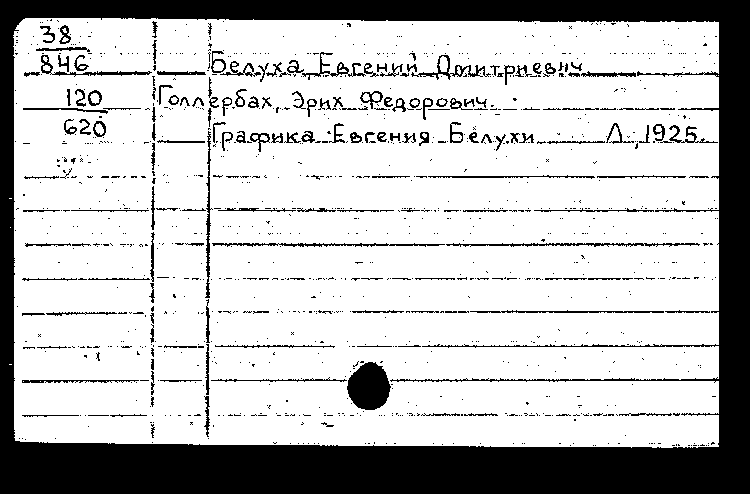 38
846 Белуха Евгений Дмитриевич
120 Голлербах, Эрих Федорович.
620 Графика Евгения Белухи Л., 1925.